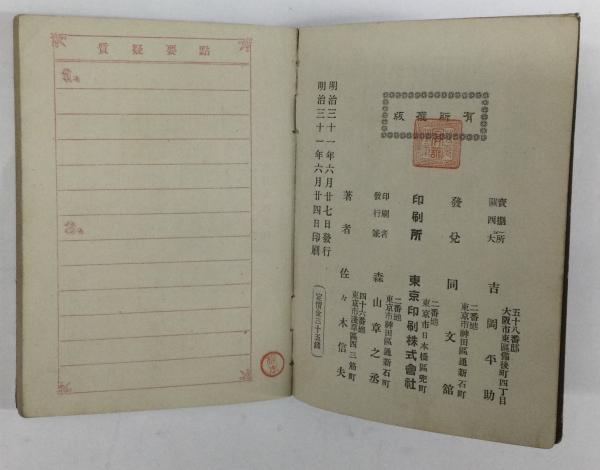 質疑要點
版權所有
明治三十一年六月廿四日印刷
明治三十一年六月廿七日發行
著者 佐々木信夫
東京市淺草區西三筋町
四十六番地
發行兼
印刷者
森山章之丞
東京市神田區通新石町
二番地
印刷所 東京印刷株式會社
東京市日本橋區兜町
二番地
發兌 同文舘
東京市神田區通新石町
二番地
關西大
賣捌所
吉岡平助
大阪市東區備後町四丁目
五十八番邸
定價金三十五錢